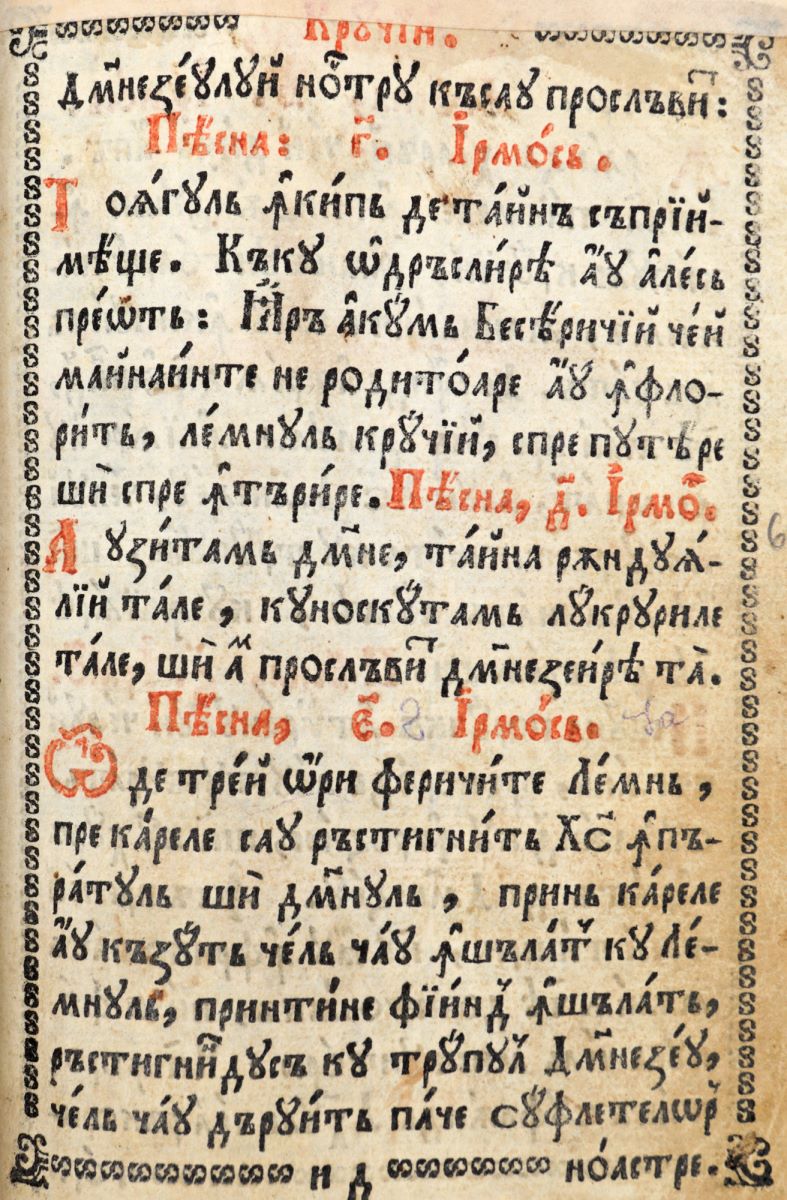 Крꙋ́чїй.
Дм҃незе́ꙋлꙋй но́стрꙋ къслꙋ прослъви́т:
Пѣ́сна: г҃. І҆рмо́съ.
Тоѧ́гꙋль ꙟ҆ки́пь де та́йнъ съпрїй-
мѣ́ще. Къкꙋ ѡ҆дръсли́рѣ а҆́ꙋ а҆ле́съ
пре́ѡть: Ꙗ҆́ръ а҆кꙋ́мь Бесѣ́ричїй че́й
майнаи́нте не родито́аре а҆́ꙋ ꙟ҆фло-
ри́ть, ле́мнꙋль крꙋ́чїй, спре пꙋтѣ́ре
шѝ спре ꙟ҆търи́ре. Пѣ́сна, д҃. І҆рмо́с.
Аꙋзи́тамь дм҃не, та́йна рѫндꙋѧ́-
лїй та́ле, кꙋноскꙋ́тамь лꙋ́крꙋриле
та́ле, шѝ а҆м прослъви́т дм҃незеи́рѣ та̀.
Пѣ́сна, є҃. І҆рмо́съ.
Ѿ де тре́й ѡ҆́ри феричи́те Ле́мнь,
пре ка́реле саꙋ ръстигни́ть Хс҃ ꙟ҆пъ-
ра́тꙋль шѝ дм҃нꙋль, принь ка́реле
а҆́ꙋ къзꙋ́ть че́ль ча́ꙋ ꙟ҆шъла́т кꙋ Ле́-
мнꙋль, принти́не фїи́нд ꙟ҆шъла́ть,
ръстигни́ндꙋсъ кꙋ трꙋ́пꙋл Дм҃незе́ꙋ,
че́ль ча́ꙋ дърꙋи́ть па́че сꙋ́флетелѡр
н д но́астре.